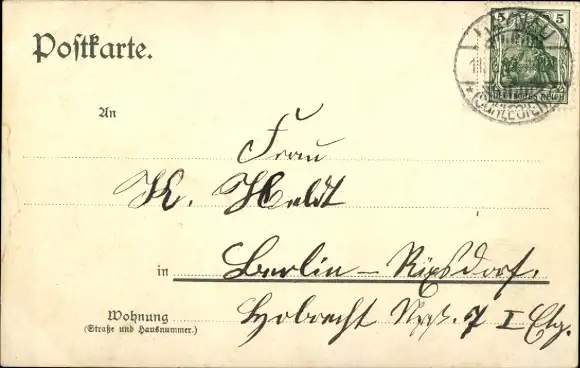 Postkarte.
5 5
An
Frau
K. Heldt
in Berlin - Rixdorf.
Wohnung
(Straße und Hausnummer.)
Hobrecht Str. 7 I Etg.
(SCHLESIEN)